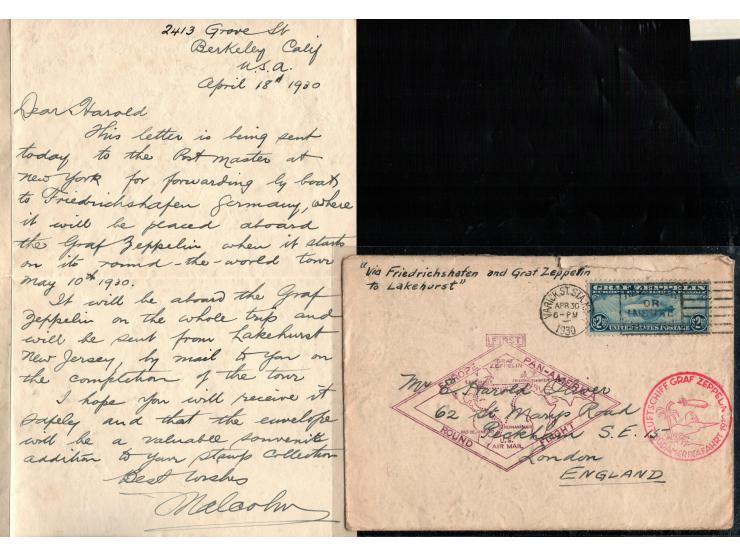 2413 Grove St
Berkeley Calif
U.S.A.
April 18th 1930
Dear Harold
This letter is being sent
today to the Post Master at
New York for forwarding by boat
to Friedrichshafen Germany, where
it will be placed aboard
the Graf Zeppelin when it starts
on its round-the-world tour
May 10th 1930.
It will be aboard the Graf
Zeppelin on the whole trip and
will be sent from Lakehurst
New Jersey, by mail to you on
the completion of the tour
I hope you will receive it
safely and that the envelope
will be a valuable souvenir
addition to your stamp collection
Best wishes
Malcolm
"Via Friedrichshafen and Graf Zeppelin
to Lakehurst"
VARICK ST. STA.
APR 30
6-PM
1930
GRAF ZEPPELIN
$2
UNITED STATES POSTAGE
FIRST
EUROPE PAN-AMERICA
GRAF
ZEPPELIN
ROUND FLIGHT
AIR MAIL
Mr E. Harold Oliver
62 St Marys Road
Peckham S.E. 15
London
ENGLAND
LUFTSCHIFF GRAF ZEPPELIN